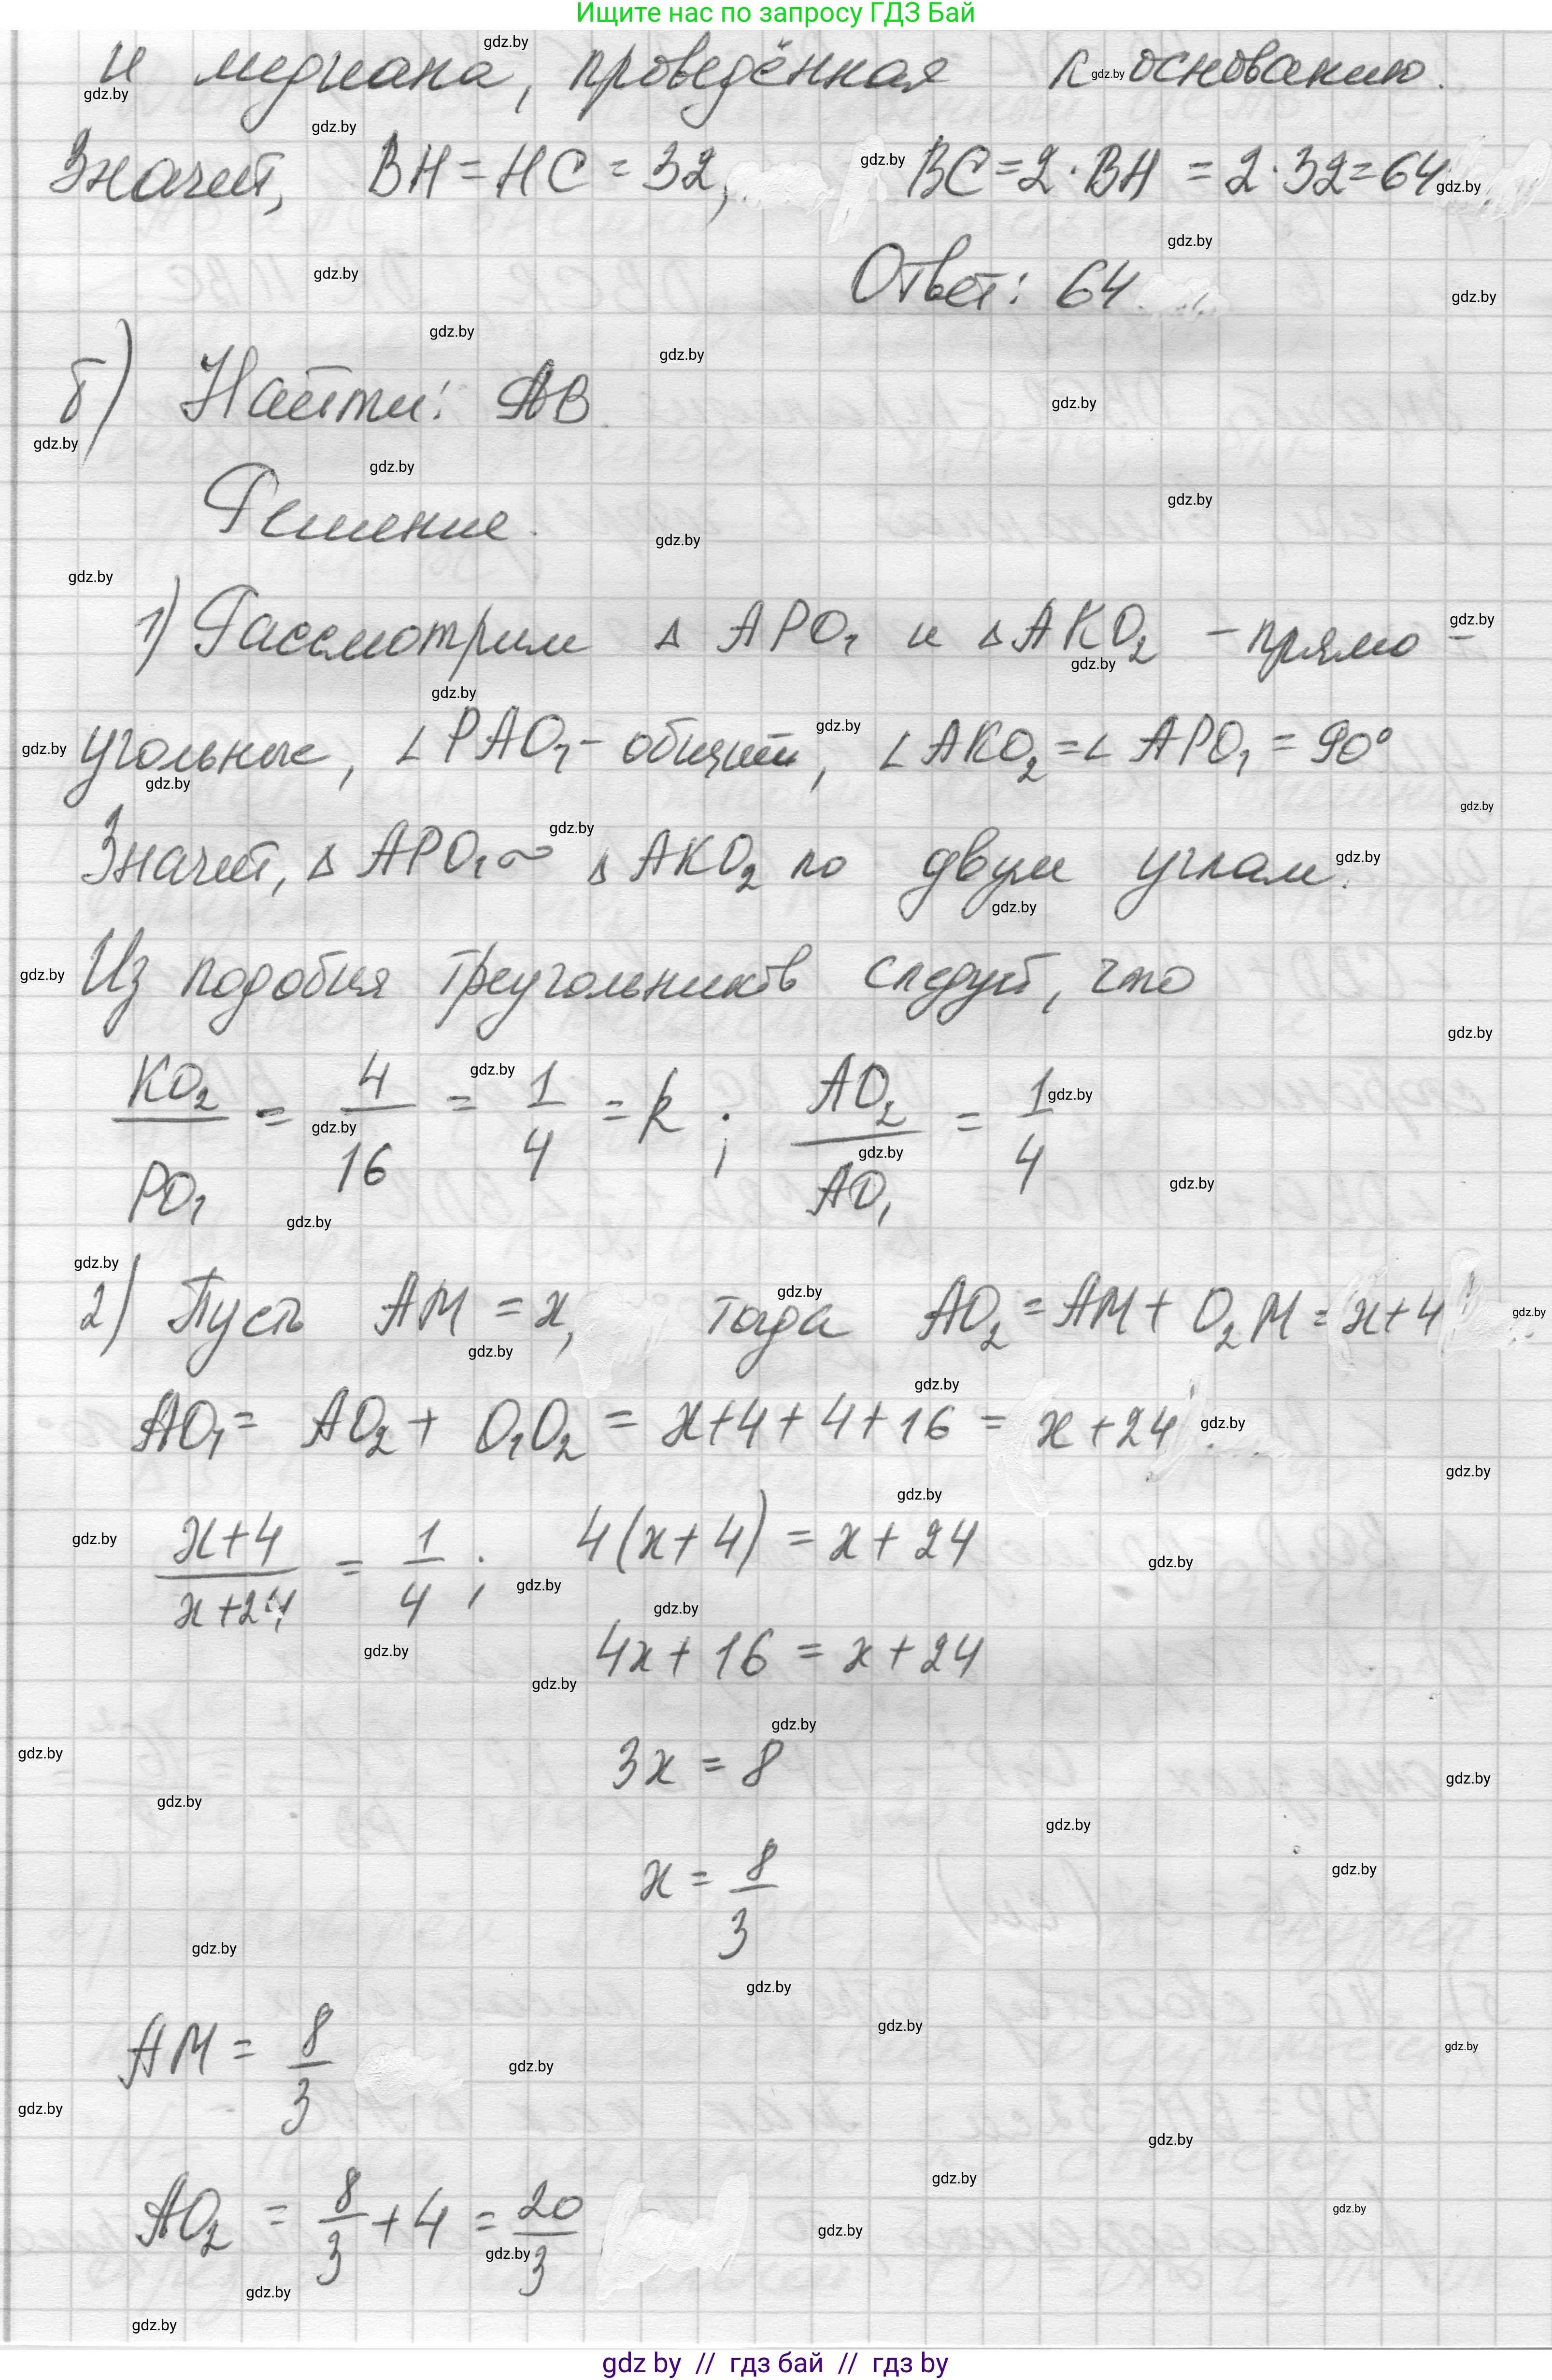 Ищите нас по запросу ГДЗ Бай
и медиана, проведённая к основанию.
Значит, BH = HC = 32, BC = 2 · BH = 2 · 32 = 64
Ответ: 64
б) Найти: AB.
Решение.
1) Рассмотрим Δ APO₁ и Δ AKO₂ – прямо-
угольные, ∠PAO₁ – общий, ∠AKO₂ = ∠APO₁ = 90°
Значит, Δ APO₁ ∾ Δ AKO₂ по двум углам.
Из подобия треугольников следует, что
KO₂/PO₁ = 4/16 = 1/4 = k ; AO₂/AO₁ = 1/4
2) Пусть AM = x, тогда AO₂ = AM + O₂M = x+4
AO₁ = AO₂ + O₁O₂ = x+4+4+16 = x+24
(x+4)/(x+24) = 1/4 ; 4(x+4) = x+24
4x + 16 = x + 24
3x = 8
x = 8/3
AM = 8/3
AO₂ = 8/3 + 4 = 20/3
gdz by // гдз бай // гдз by